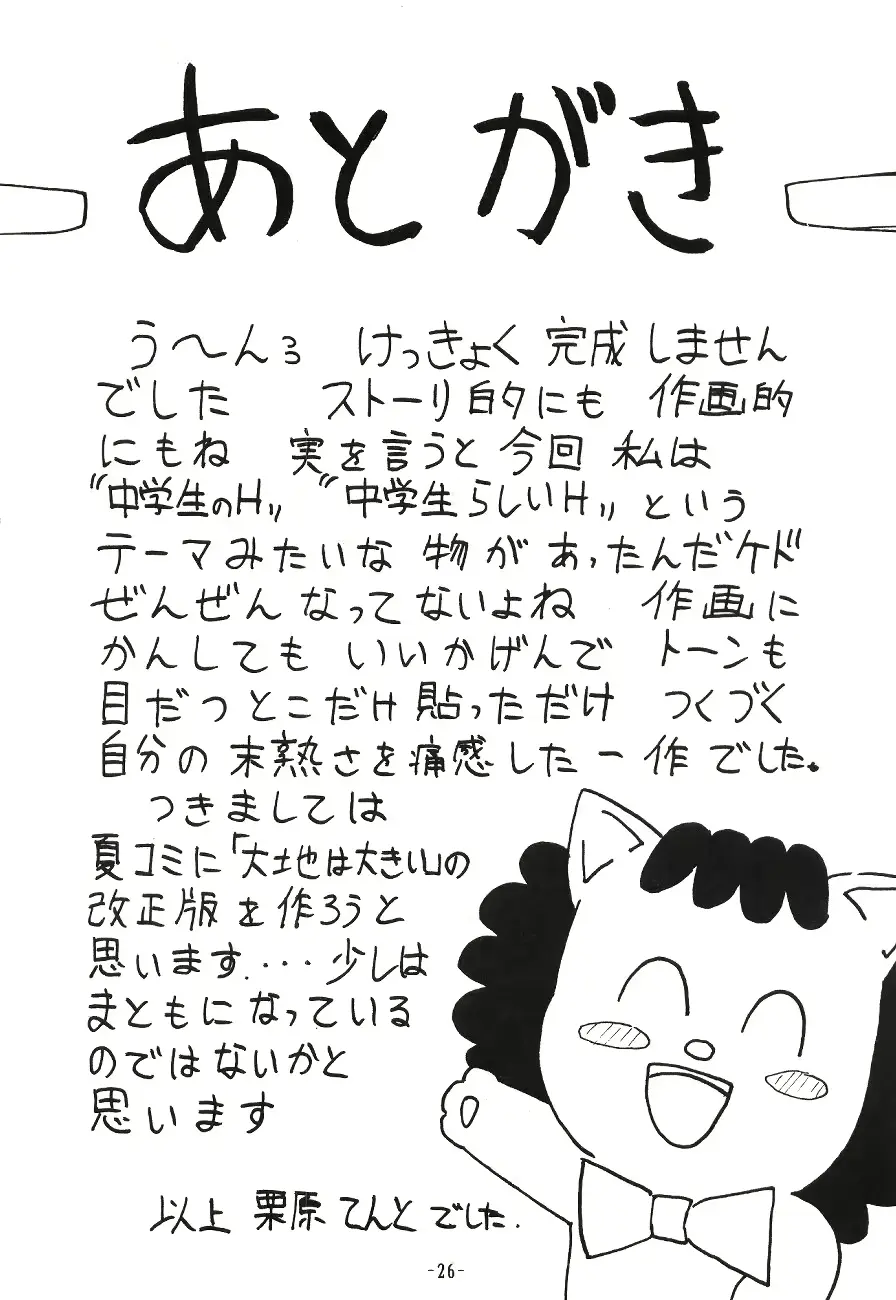 あとがき
う〜んろ けっきょく 完成しません
でした ストーリ的にも 作画的
にもね 実を言うと 今回 私は
〝中学生のH〟〝中学生らしいH〟という
テーマみたいな 物が あったんだケド
ぜんぜん なってないよね 作画に
かんしても いいかげんで トーンも
目だつとこだけ 貼っただけ つくづく
自分の 末熟さを痛感した一作でした。
つきましては
夏コミに「大地は大きい」の
改正版を作ろうと
思います.・・・少しは
まともになっている
のではないかと
思います
以上 栗原 てんと でした.
-26-